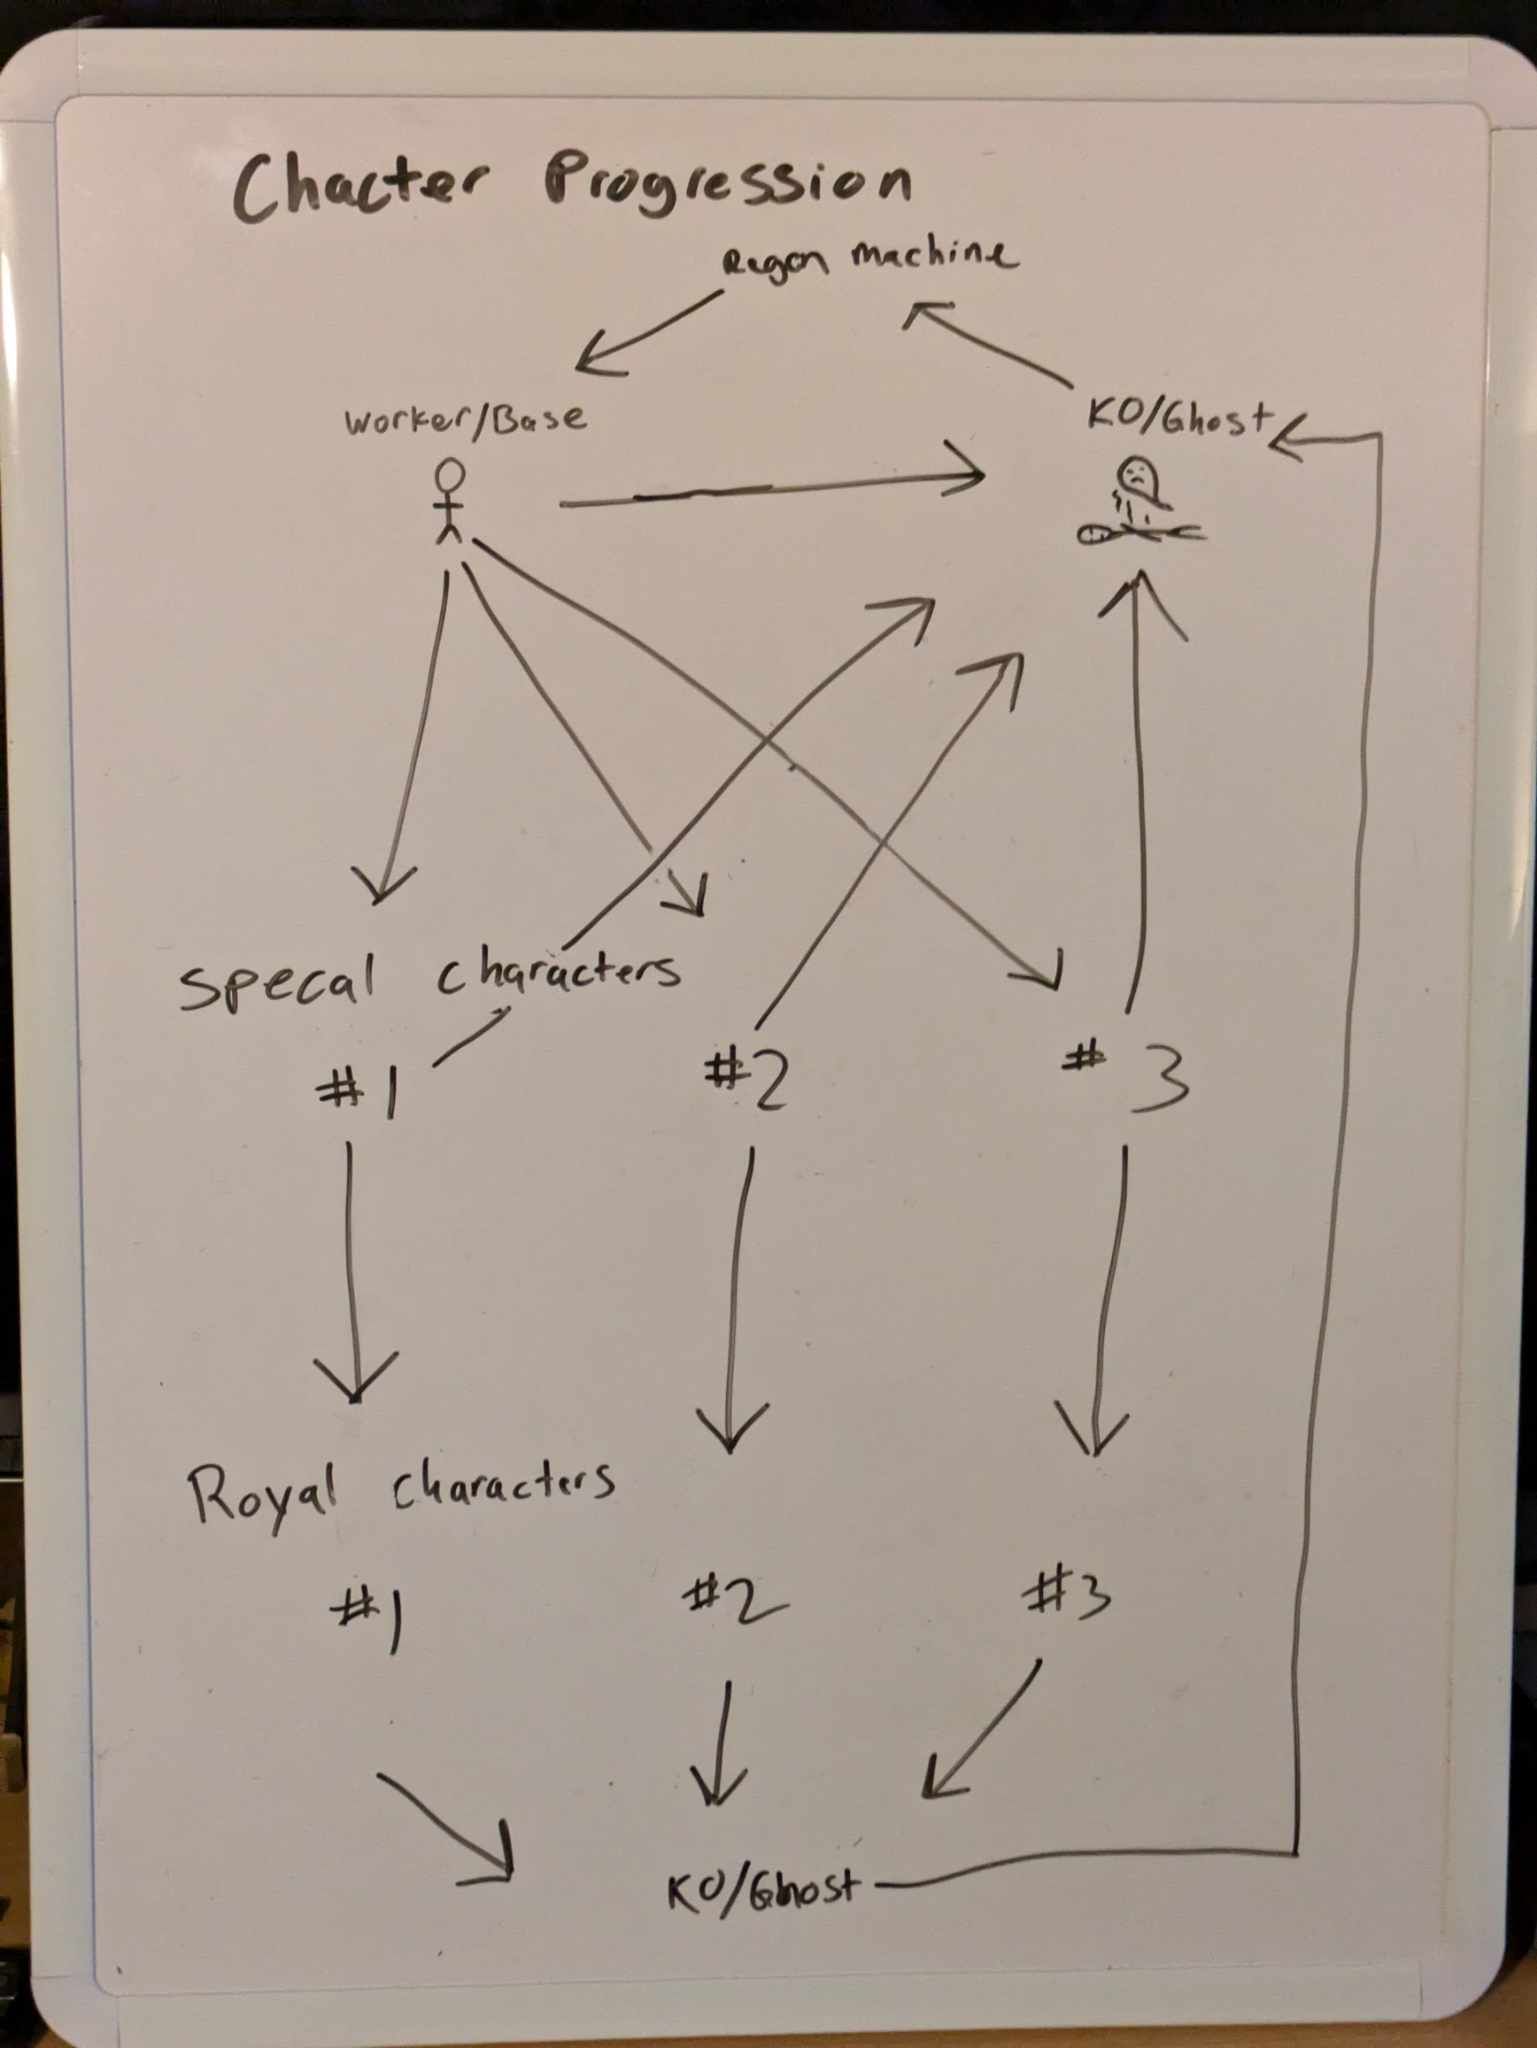 Chacter Progression
Regen machine
Worker/Base
KO/Ghost
Specal characters
#1
#2
#3
Royal characters
#1
#2
#3
KO/Ghost